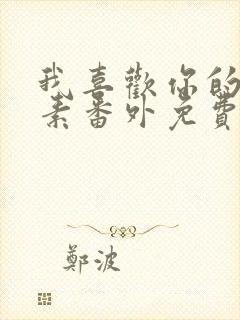 我喜歡你的
素番外免費
鄭波